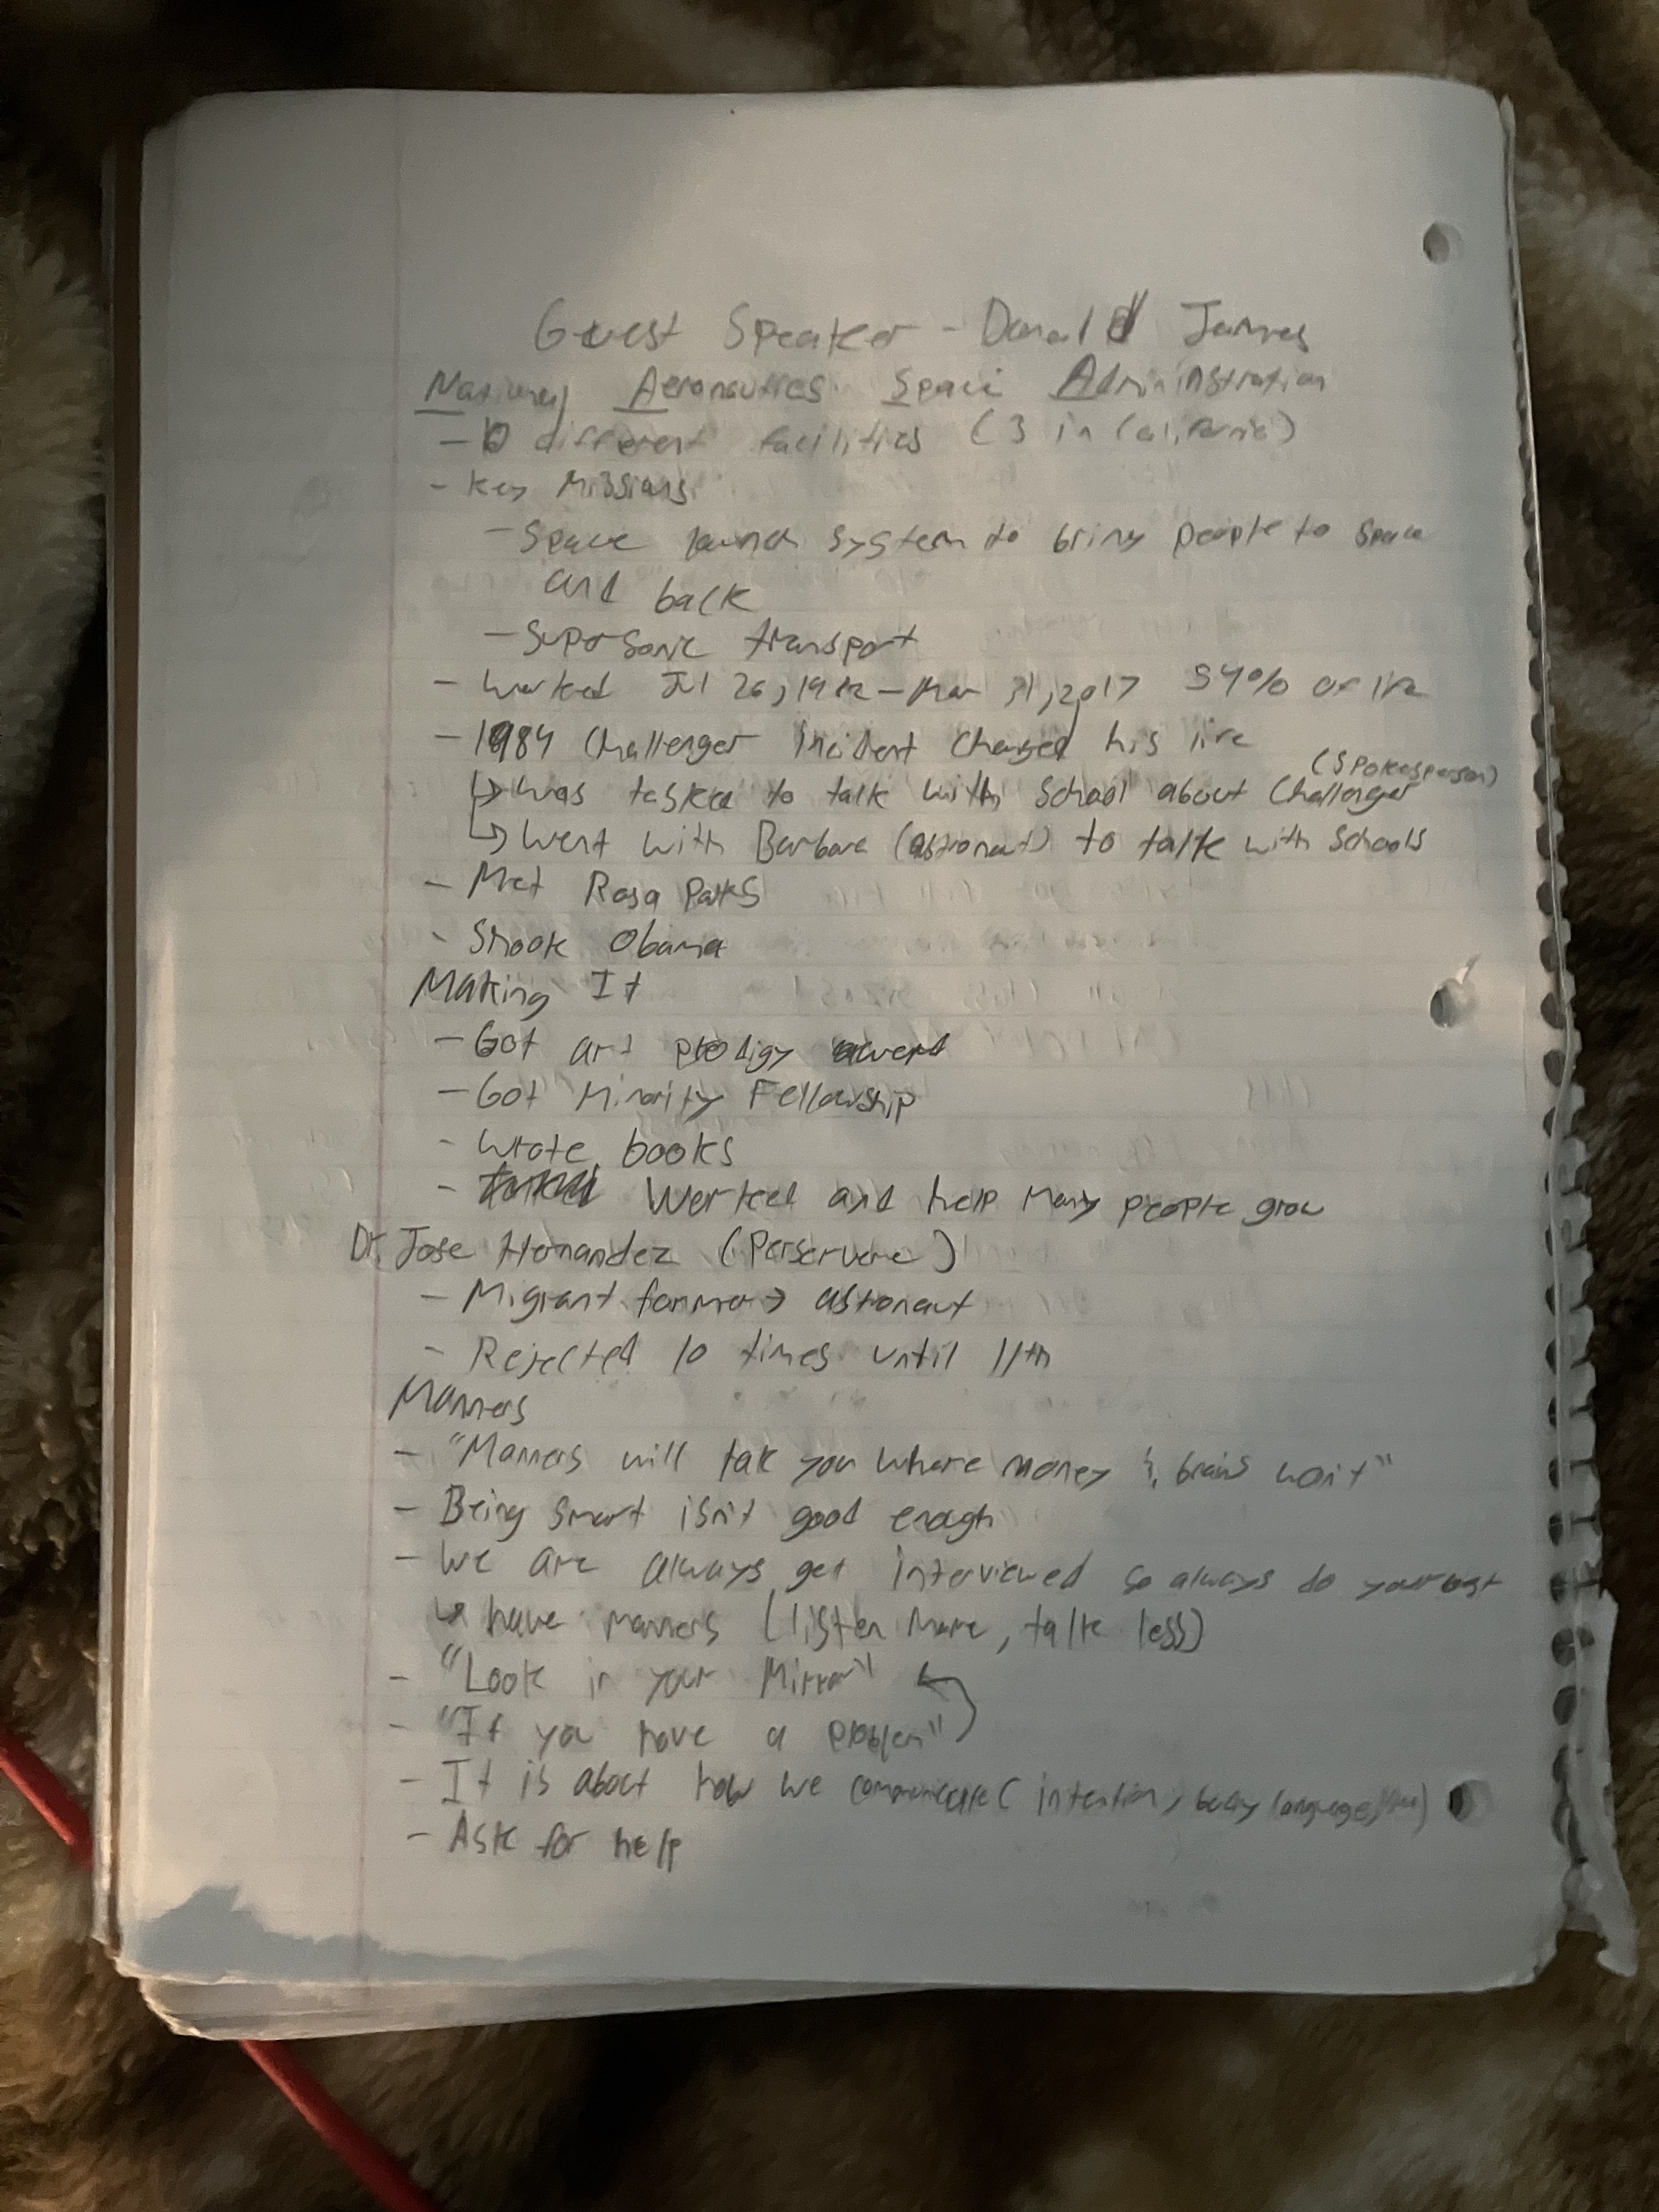 Guest Speaker - Donald James
National Aeronautics Space Administration
- 10 different facilities (3 in California)
- Key Missions
- Space launch system to bring people to space
and back
- Supersonic transport
- Worked Jul 26, 1982 - Mar 31, 2017 54% of life
- 1984 Challenger Incident changed his life
(Spokesperson)
↳ Was tasked to talk with School about Challenger
↳ Went with Barbara (astronaut) to talk with Schools
- Met Rosa Parks
- Shook Obama
Making It
- Got art prodigy award
- Got Minority Fellowship
- Wrote books
- Worked and help many people grow
Dr. Jose Hernandez (Perservere)
- Migrant farmer → astronaut
- Rejected 10 times until 11th
Manners
- "Manners will tak you where money & brains won't"
- Being smart isn't good enough
- We are always get interviewed so always do your best
↳ have manners (listen more, talk less)
- "Look in your Mirror"
- "If you have a problem"
- It is about how we communicate (intention, body language,
- Ask for help